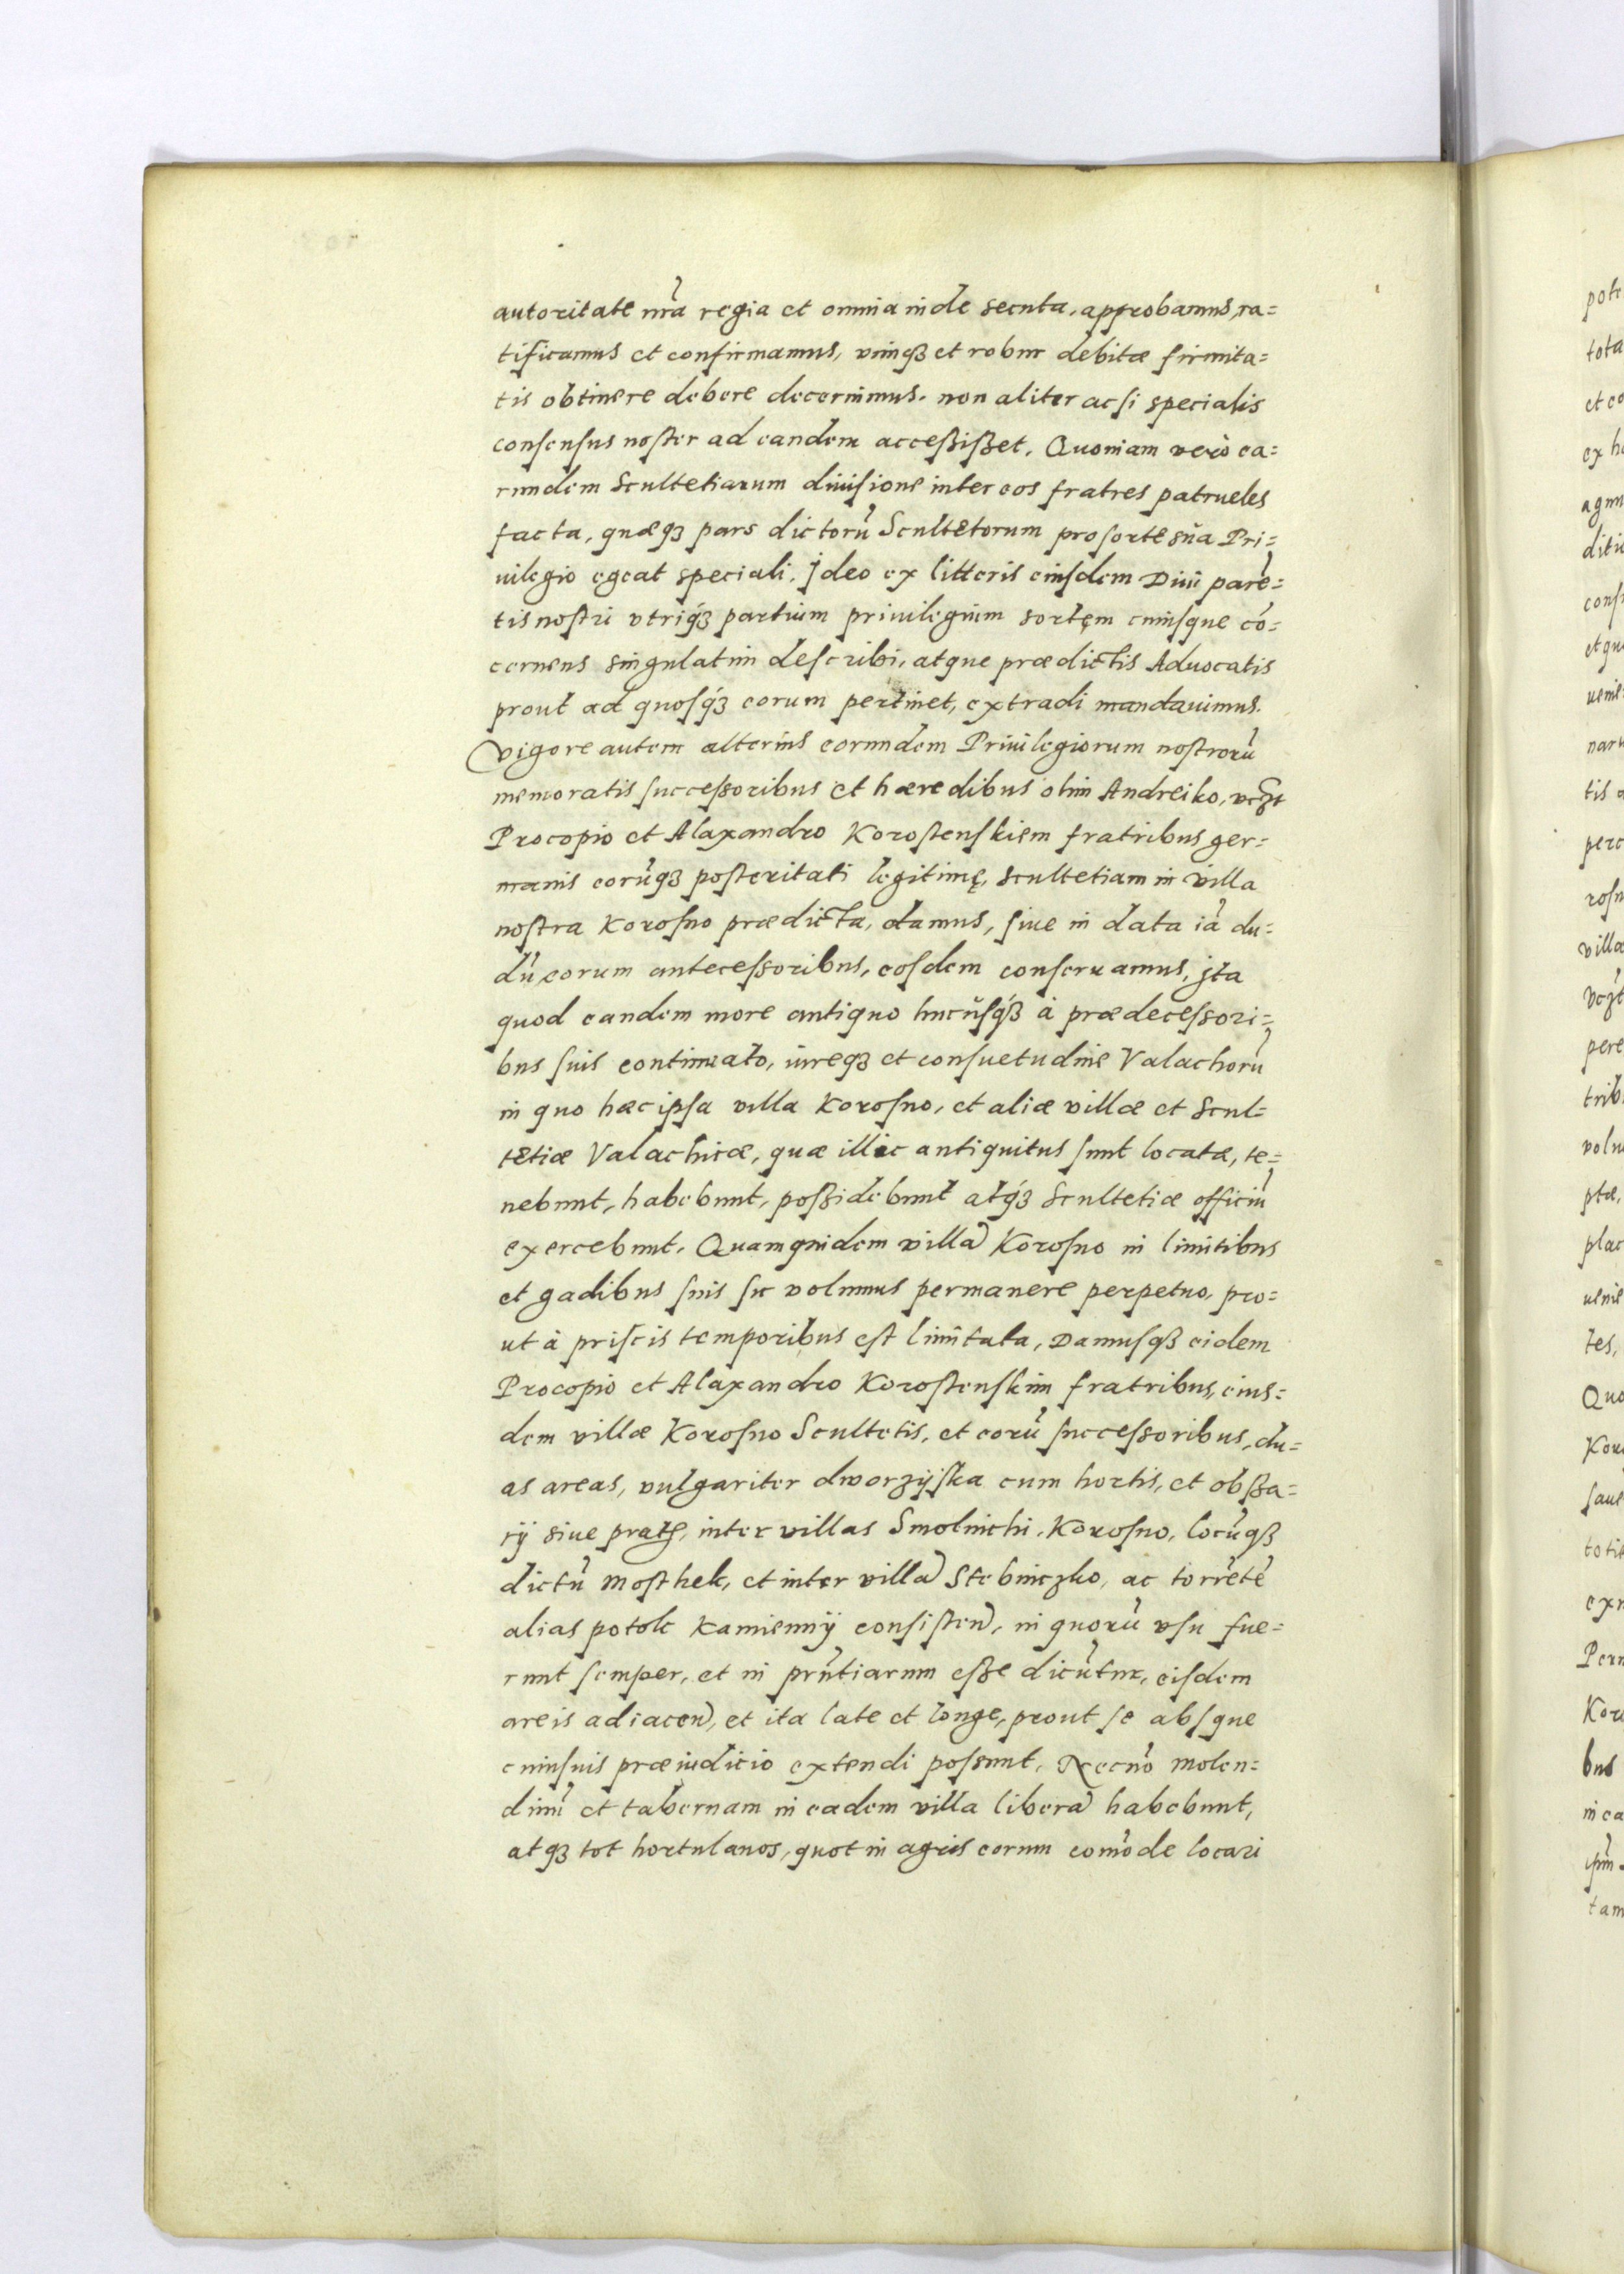 autoritate nr̃a regia et omnia inde secuta, approbamus, ra=
tificamus et confirmamus, vimqȝ et robur debitæ firmita=
tis obtinere debere decernimus. non aliter ac si specialis
consensus noster ad eandem accessisset. Quoniam verò ea=
rundem Scultetiarum diuisione inter eos fratres patrueles
facta, quæqȝ pars dictorũ Scultetorum pro sorte sũa Pri=
uilegio egeat speciali. Ideo ex litteris eiusdem Diui parẽ=
tis nostri vtriqȝ partium priuilegium sortem cuiusque cõ=
cernens singulatim describi, atque prædictis Aduocatis
prout ad quosqȝ eorum pertinet, extradi mandauimus.
Vigore autem alterius eorundem Priuilegiorum nostrorũ
memoratis successoribus et hæredibus olim Andreiko, vcȝt
Procopio et Alaxandro Korostenskiem fratribus ger=
manis eorũqȝ posteritati legitimę, scultetiam in villa
nostra Korosno prædicta, damus, siue in data iã du=
dũ eorum antecessoribus, eosdem conseruamus, jta
quod eandem more antiquo hucũsqȝ à prædecessori=
bus suis continuato, iureqȝ et consuetudine Valachorũ
in quo hæc ipsa villa Korosno, et aliæ villæ et Scul=
tetiæ Valachicæ, quæ illic antiquitus sunt locatæ, te=
nebunt, habebunt, possidebunt atqȝ Scultetiæ officiũ
exercebunt. Quamquidem villã Korosno in limitibus
et gadibus suis sic volumus permanere perpetuo, pro=
ut à priscis temporibus est limitata, Damusqȝ eidem
Procopio et Alaxandro Korostenskim fratribus, eius=
dem villæ Korosno Scultetis, et eorũ successoribus, du=
as areas, vulgariter dworzijska cum hortis, et obsza=
rij siue pratȩ, inter villas Smolnichi, Korosno, locũqȝ
dictũ Mosthek, et inter villã Stebniczko, ac torrẽtẽ
alias potok Kamiennÿ consisteñ, in quorũ vsu fue=
runt semper, et in pr̃ntiarum esse dicũtur, eisdem
areis adiaceñ, et ita late et longe, prout se absque
cuiusuis præiudicio extendi possunt. Necnõ molen=
dinũ et tabernam in eadem villa liberã habebunt,
atqȝ tot hortulanos, quot in agris eorum com̃ode locari